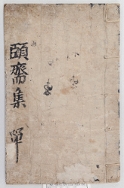 頤齋集 單